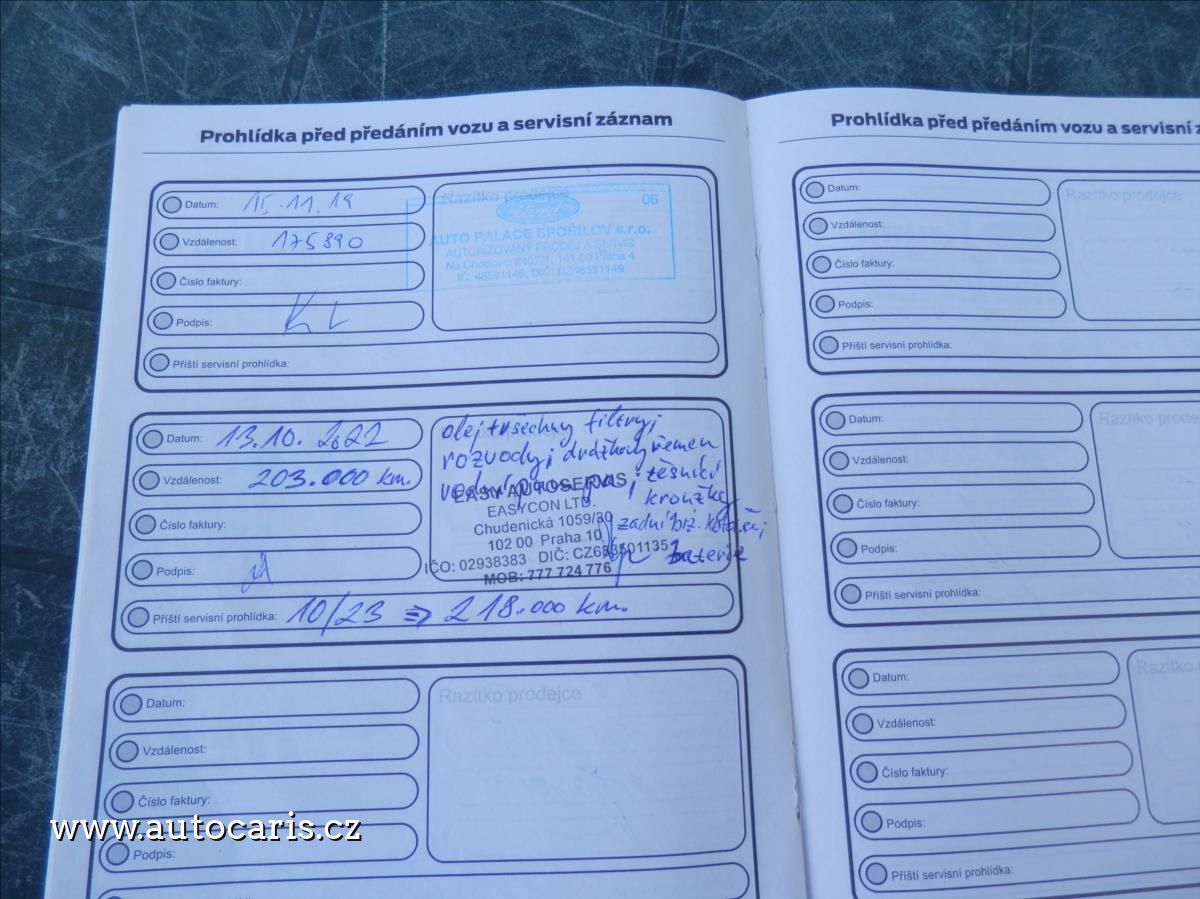 Prohlídka před předáním vozu a servisní záznam
Datum: 15.11.19
Vzdálenost: 175890
Číslo faktury:
Podpis:
Příští servisní prohlídka:
Razítko prodejce
Ford
06
AUTO PALACE SPOŘILOV s.r.o.
AUTORIZOVANÝ PRODEJ A SERVIS
Na Chodovci 2457/1, 141 00 Praha 4
IČ: 48591149, DIČ: CZ48591149
Datum: 13.10. 2022
Vzdálenost: 203.000 km.
Číslo faktury:
Podpis:
Příští servisní prohlídka: 10/23 => 218.000 km.
olej+všechny filtry;
rozvody; drážkový řemen
vodní těsnící
kroužky
zadní brz. kotouče;
baterie
EASY AUTOSERVIS
EASYCON LTD.
Chudenická 1059/30
102 00 Praha 10
IČO: 02938383 DIČ: CZ6835011351
MOB: 777 724 776
Datum:
Vzdálenost:
Číslo faktury:
Podpis:
Razítko prodejce
Prohlídka před předáním vozu a servisní z
Datum:
Vzdálenost:
Číslo faktury:
Podpis:
Příští servisní prohlídka:
Razítko prodejce
Datum:
Vzdálenost:
Číslo faktury:
Podpis:
Příští servisní prohlídka:
Razítko prodej
Datum:
Vzdálenost:
Číslo faktury:
Podpis:
Příští servisní prohlídka:
Razítko
www.autocaris.cz